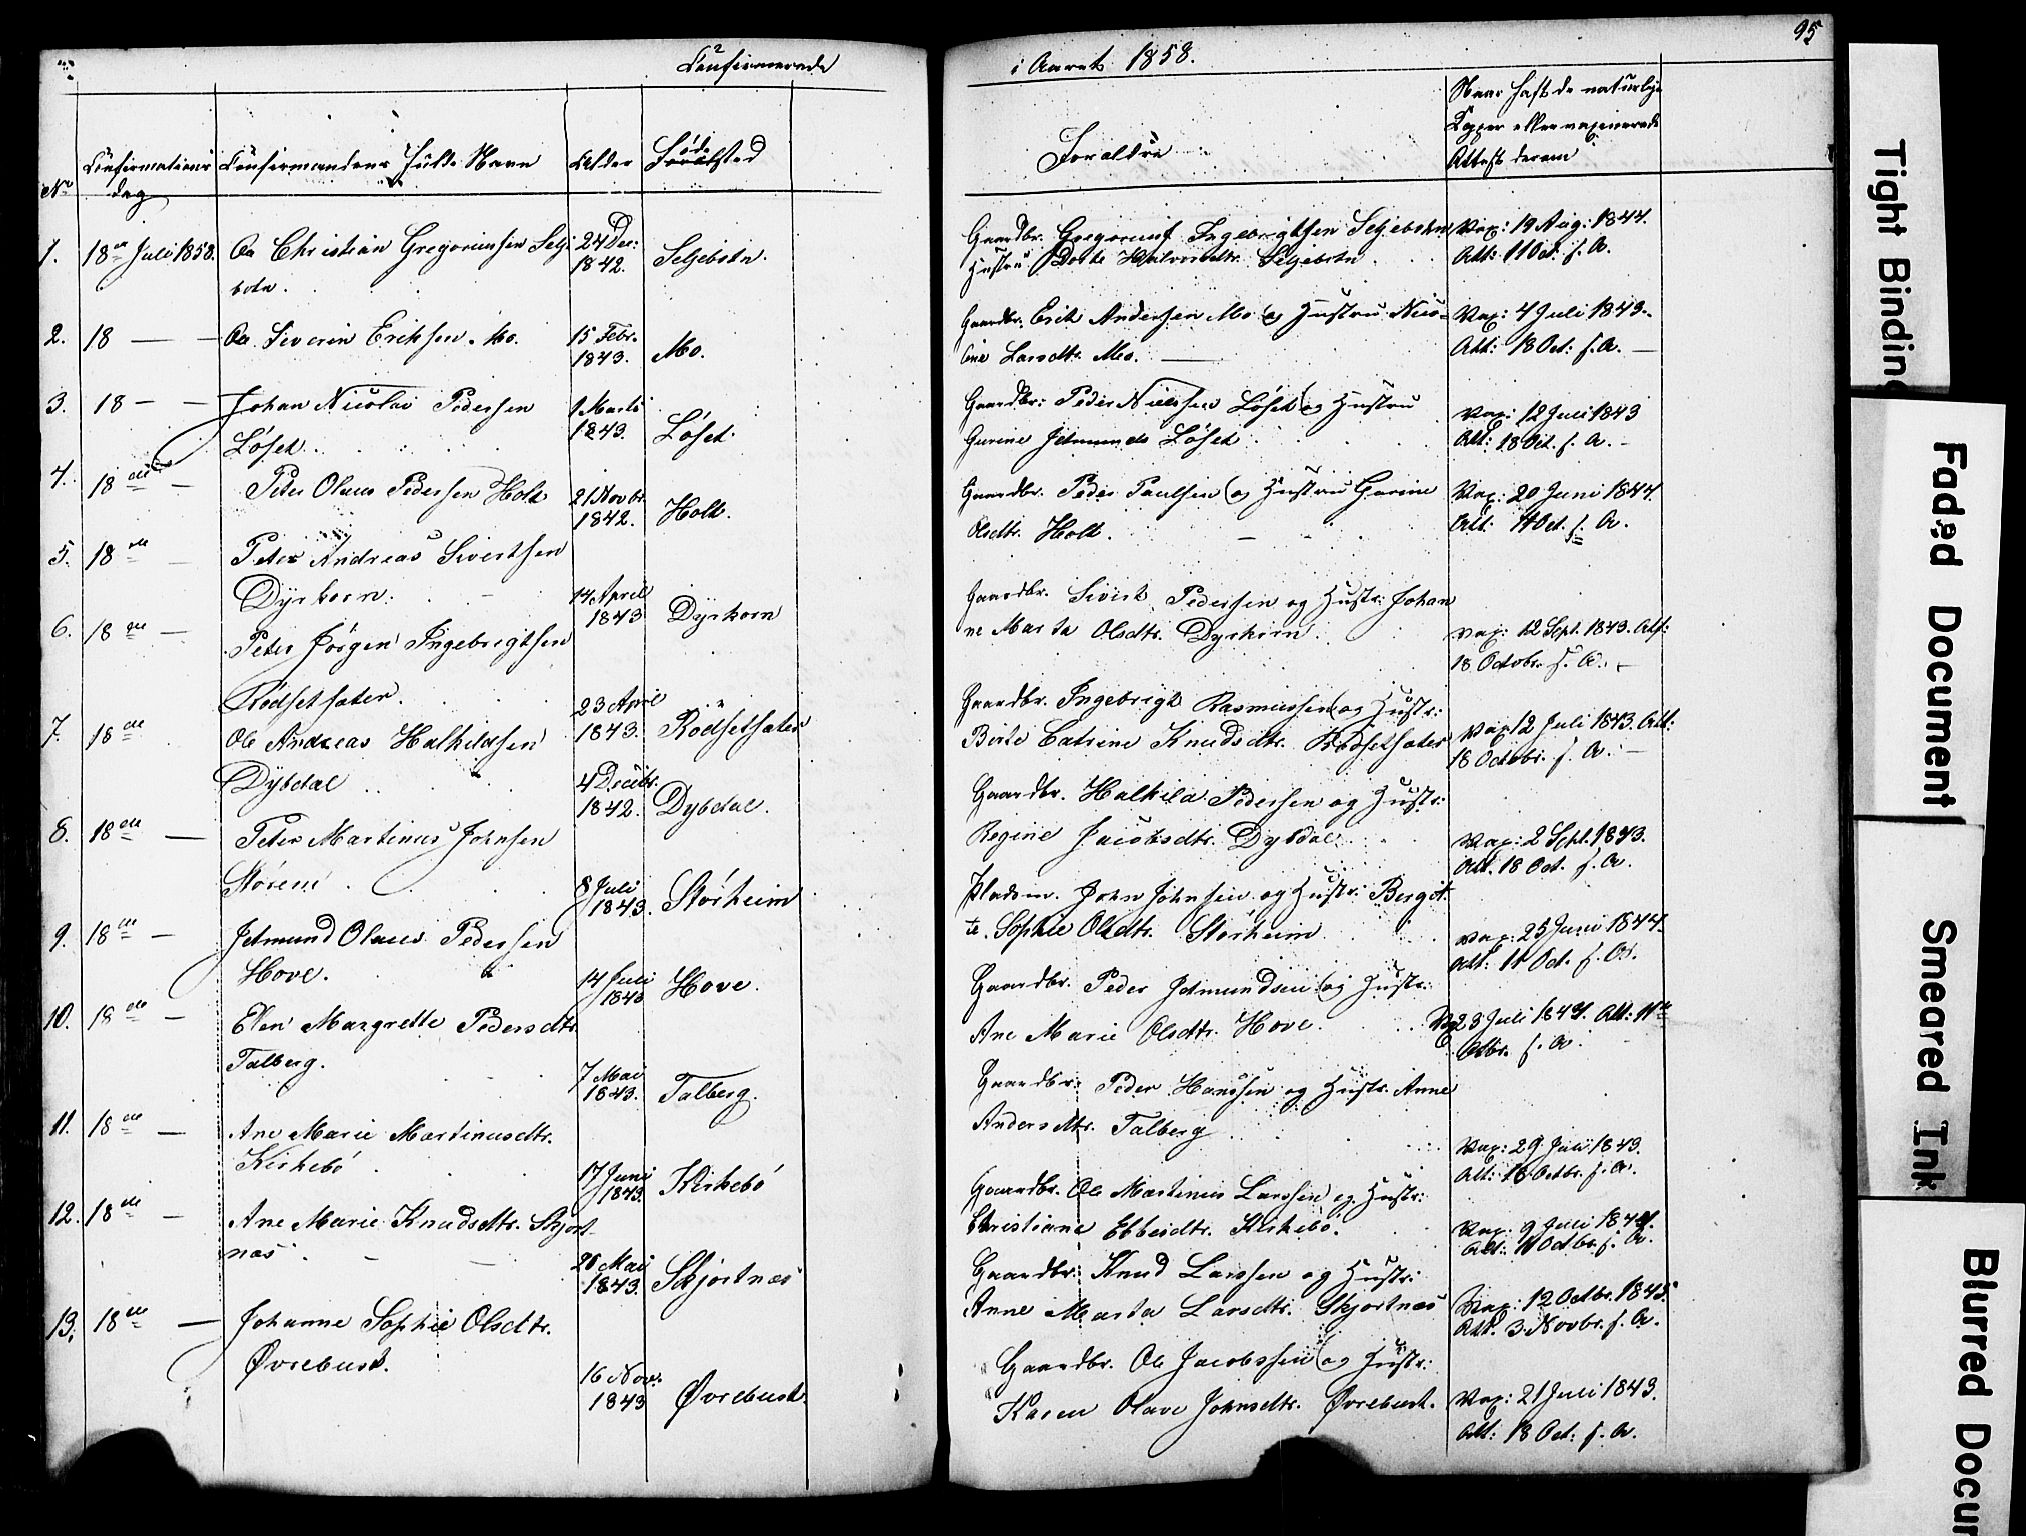 Confirmerede
i Aaret 1858.
95
No
Confirmations
dag
Confirmandens fulde Navn
Alder
Fødested
Forældre
Naar havt de naturlige
Kopper eller vaxinerede
Attest derom
1. 18de Juli 1858. Ole Christian Gregoriussen Selje-
botn. 24 Dec: 1842. Seljebotn.
Gaardbr. Gregorius Ingebrigtsen Seljebotn
Hustru Dorte Halvorsdtr. Seljebotn.
Vax: 19 Aug: 1844.
Att: 11 Oct. s. A.
2. 18 — — Ole Severin Eriksen Mo. 15 Febr. 1843. Mo.
Gaardbr. Erik Andersen Mo og Hustru Nico-
line Larsdtr. Mo.
Vax: 4 Juli 1843.
Att: 18 Oct: s. A. —
3. 18 — — Johan Nicolai Pedersen
Løset. 1 Marts 1843. Løset.
Gaardbr: Peder Nielssen Løset og Hustru
Gurine Jetmunds Løset
Vax: 12 Juli 1843
Att: 18 Oct. s. A. —
4. 18de — Peter Olaus Pedersen Holt 21 Novbr. 1842. Holt.
Gaardbr. Peder Paulsen og Hustru Gurine
Olsdtr. Holt.
Vax: 20 Juni 1844.
Att: 11 Oct. s. A.
5. 18de — Peter Andreas Sivertsen
Dyrkorn. 14 April 1843 Dyrkorn
Gaardbr. Sivert Pedersen og Hustr: Johan
ne Marta Olsdtr. Dyrkorn.
Vax: 12 Sept. 1843. Att:
18 Octobr. s. A. —
6. 18de — Peter Jørgen Ingebrigtsen
Rødsetsæter. 23 April 1843. Rødsetsæter
Gaardbr. Ingebrigt Rasmussen og Hustr:
Birte Catrine Knudsdtr. Rødsetsæter
Vax 12 Juli 1843. Att:
18 Octobr. s. A. —
7. 18de Ole Andreas Halkildsen
Dybdal 4 Decbr. 1842. Dybdal.
Gaardbr. Halkild Pedersen og Hustr:
Regine Jacobsdtr. Dybdal.
Vax: 2 Sept. 1843.
Att. 18 Oct. s. A.
8. 18de — Peter Martinus Johnsen
Størem 8 Juli 1843. Størheim
Pladsm. John Johnsen og Hustr: Bergit-
te Sophie Olsdtr. Størheim
Vax: 25 Juni 1844.
Att: 11 Oct. s. A.
9. 18de — Jetmund Olaus Pedersen
Hove. 14 Juli 1843 Hove.
Gaardbr. Peder Jetmundsen og Hustr:
Ane Marie Olsdtr. Hove.
Vax 23 Juli 1844. Att: 11te
Octbr. s. A.
10. 18de — Elen Margrette Pedersdtr.
Talberg. 7 Mai 1843. Talberg.
Gaardbr. Peder Hanssen og Hustr. Anne
Andersdtr. Talberg
Vax: 29 Juli 1843.
Att: 18 Octbr. s. A.
11. 18de — Ane Marie Martinusdtr.
Kirkebø 17 Juni 1843. Kirkebø
Gaardbr. Ole Martinus Larssen og Hustr:
Christiane Ebbesdtr. Kirkebø.
Vax. 9 Juli 1844.
Att: 11 Octbr. s. A.
12. 18de — Ane Marie Knudsdtr. Skjort-
næs. 26 Mai 1843. Skjortnæs
Gaardbr: Knud Larssen og Hustr:
Anne Marta Larsdtr. Skjortnæs
Vax: 12 Octbr. 1845
Att. 3 Novbr. s. A.
13. 18de — Johanne Sophie Olsdtr.
Øvrebust. 16 Nov. 1843 Øvrebust.
Gaardbr. Ole Jacobssen og Hustr:
Karen Olave Johnsdtr. Øvrebust.
Vax: 21 Juli 1843.
Att: 18 Oct: s. A.
Tight Binding
Faded Document
Smeared Ink
Blurred Docum